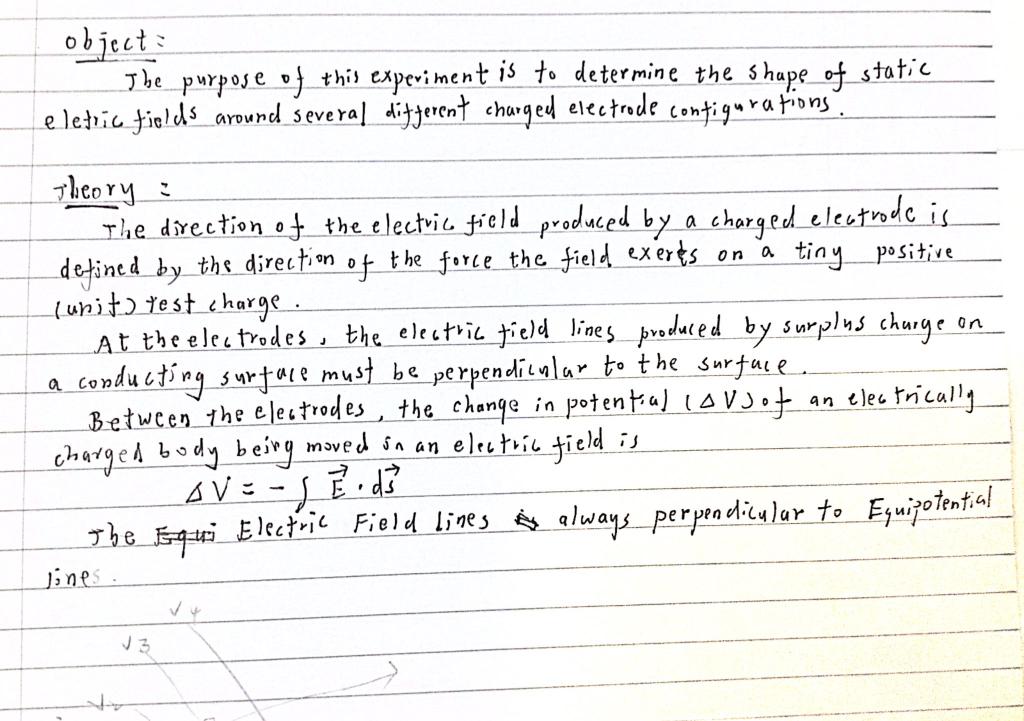 object:
The purpose of this experiment is to determine the shape of static
eletric fields around several different charged electrode configurations.
Theory:
The direction of the electric field produced by a charged electrode is
defined by the direction of the force the field exerts on a tiny positive
(unit) test charge.
At the electrodes, the electric field lines produced by surplus charge on
a conducting surface must be perpendicular to the surface.
Between the electrodes, the change in potential (ΔV) of an electrically
charged body being moved in an electric field is
ΔV = - ∫ E⃗ · ds⃗
The Equi Electric Field lines always perpendicular to Equipotential
lines.
V4
V3